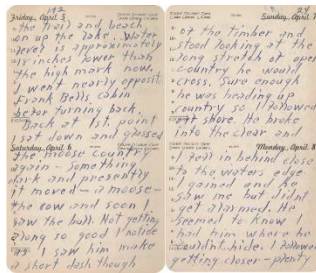 192
Friday, April 5
the trail and beach
on up the lake. Water
level is approximately
18 inches lower than
the high mark now.
I went nearly opposite
Frank Bells cabin
before turning back.
Back at 1st. point
sat down and glassed
Saturday, April 6
the moose country
again - something
and presently
it moved - a moose -
the cow and soon I
saw the bull. Not getting
along so good I
I saw him make
a short dash though
24
Sunday, April 7
of the timber and
stood looking at the
long stretch of open
country he would
cross. Sure enough
he was heading up
country so I followed
shore. He broke
into the clear and
Monday, April 8
I fell in behind close
to the waters edge.
I gained and he
saw me but didn't
get alarmed. He
seemed to know I
had him where he
couldn't hide. I followed
getting closer - plenty